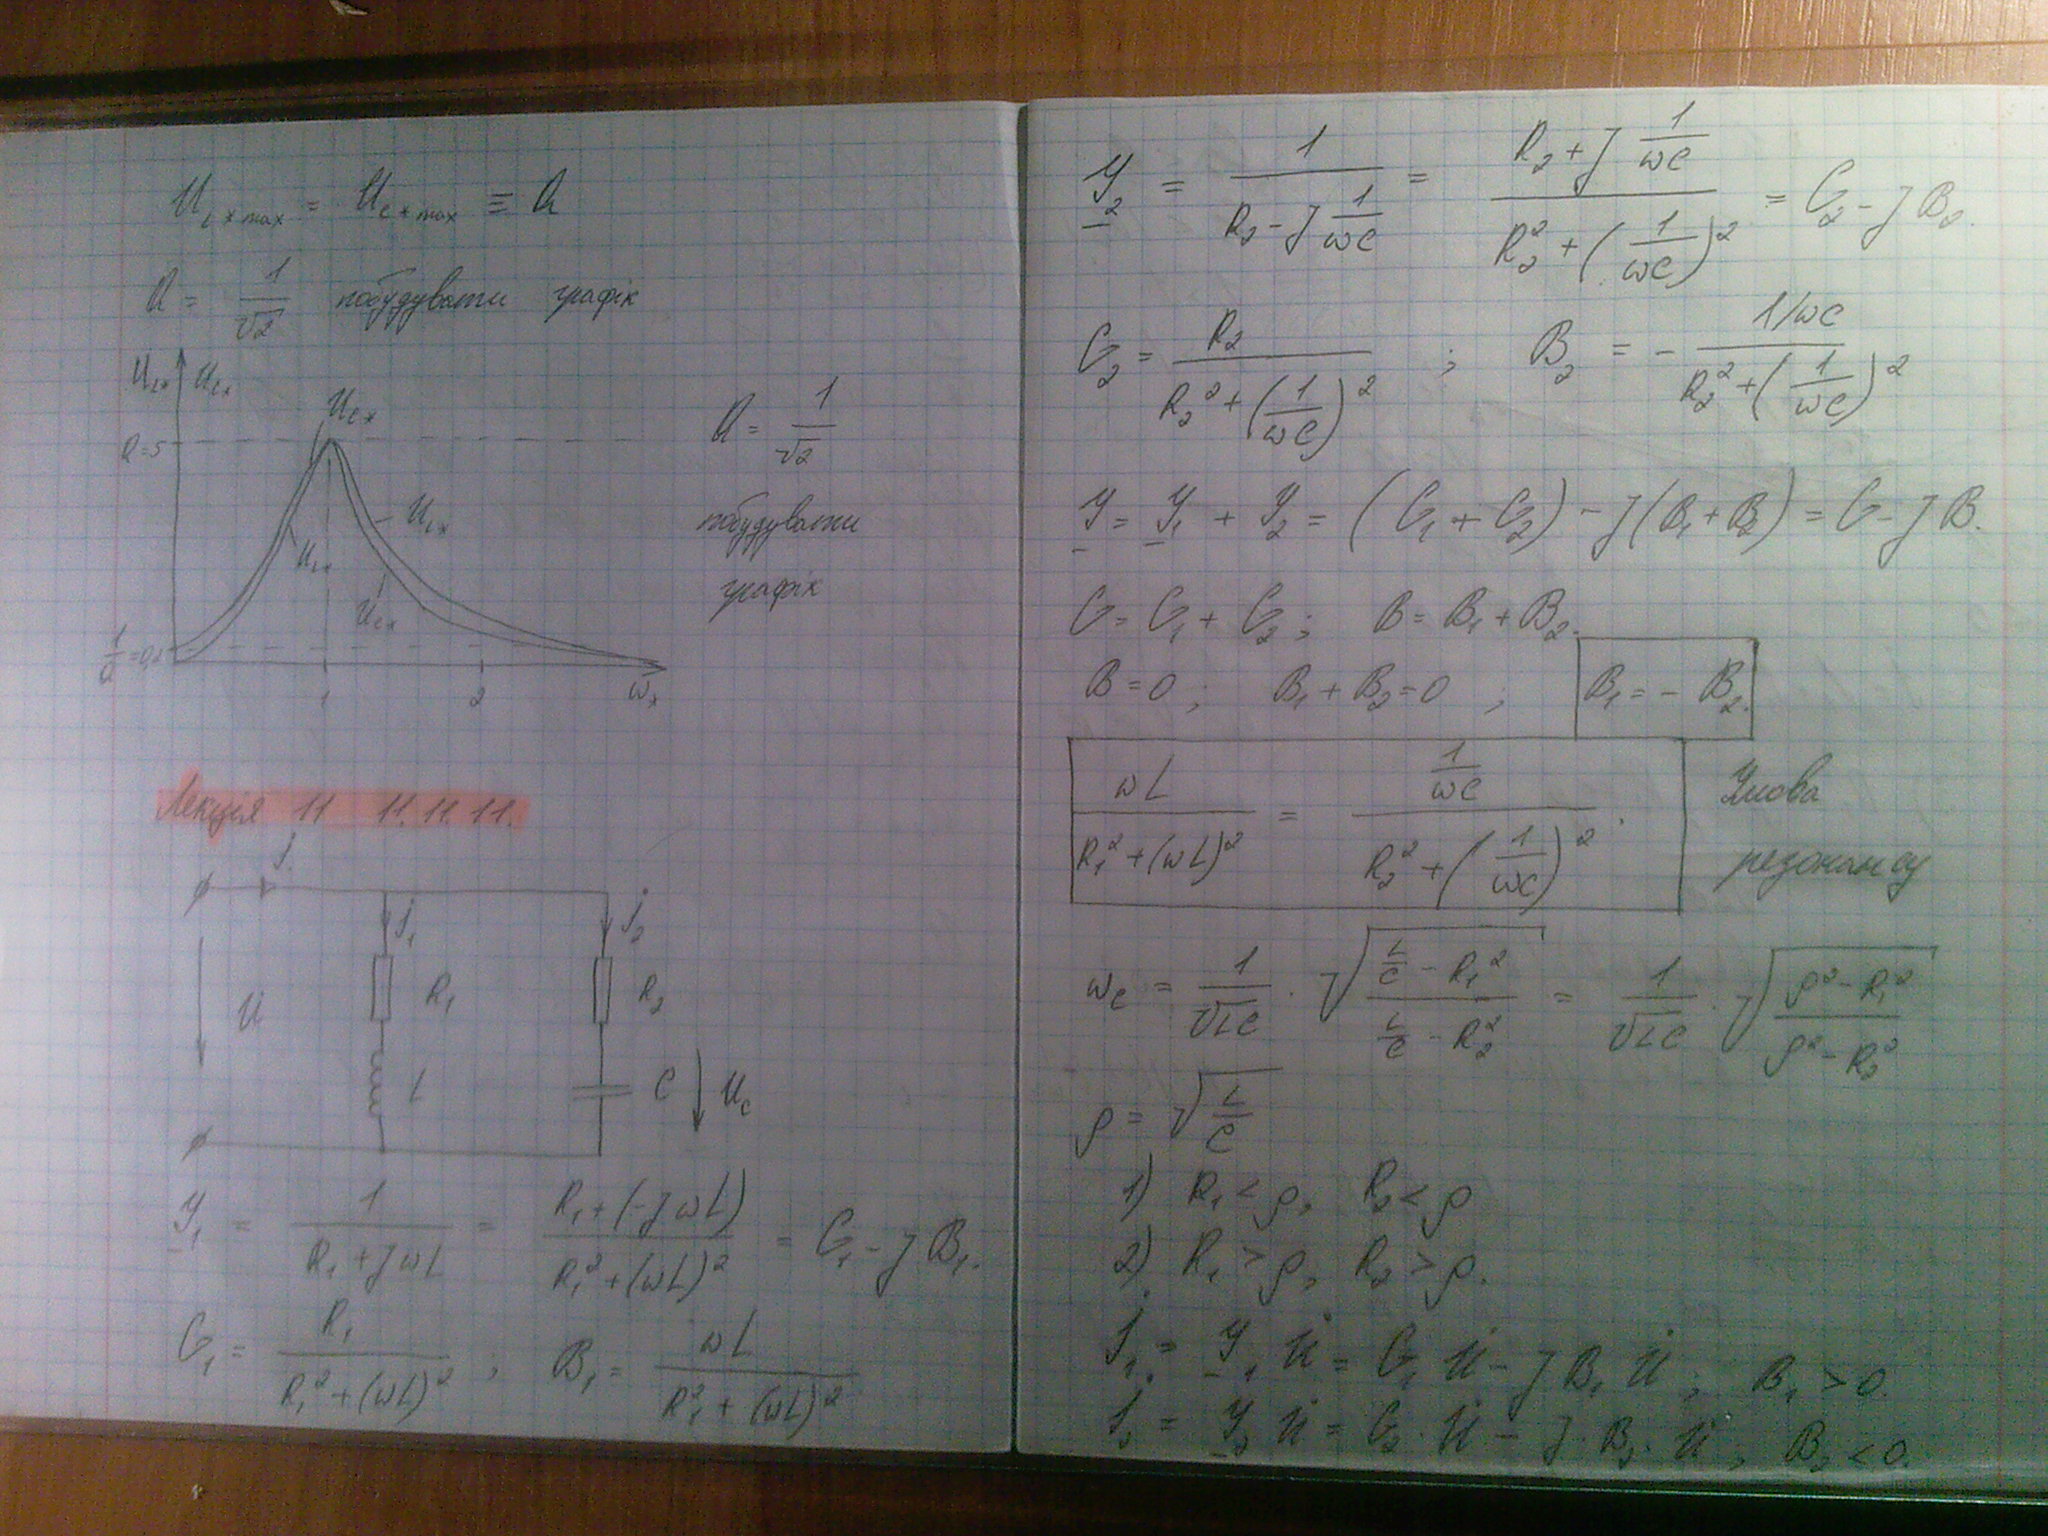 U_L*max = U_C*max ≡ Q
Q = 1/√2 побудувати графік
U_L* U_C*
U_C*
Q=5
U_L*
U_L*
U_C*
1/Q=0,2
1 2 ω*
Q = 1/√2
побудувати
графік
Лекція 11 11.11.11.
İ
İ₁ İ₂
U̇ R₁ R₂
L C U_C
Y₁ = 1/(R₁+jωL) = (R₁+(-jωL))/(R₁²+(ωL)²) = G₁ - jB₁.
G₁ = R₁/(R₁²+(ωL)²) ; B₁ = ωL/(R₁²+(ωL)²)
Y₂ = 1/(R₂-j 1/ωC) = (R₂+j 1/ωC)/(R₂²+(1/ωC)²) = G₂ - jB₂.
G₂ = R₂/(R₂²+(1/ωC)²) ; B₂ = - (1/ωC)/(R₂²+(1/ωC)²)
Y = Y₁ + Y₂ = (G₁+G₂) - j(B₁+B₂) = G - jB.
G = G₁ + G₂ ; B = B₁ + B₂.
B = 0 ; B₁ + B₂ = 0 ; B₁ = - B₂.
ωL/(R₁²+(ωL)²) = (1/ωC)/(R₂²+(1/ωC)²) . Умова
резонансу
ω_C = 1/√LC · √((L/C - R₁²)/(L/C - R₂²)) = 1/√LC · √((ρ² - R₁²)/(ρ² - R₂²))
ρ = √(L/C)
1) R₁ < ρ, R₂ < ρ
2) R₁ > ρ, R₂ > ρ.
İ₁ = Y₁ U̇ = G₁ U̇ - jB₁ U̇ ; B₁ > 0.
İ₂ = Y₂ U̇ = G₂ · U̇ - j · B₂ · U̇ ; B₂ < 0.